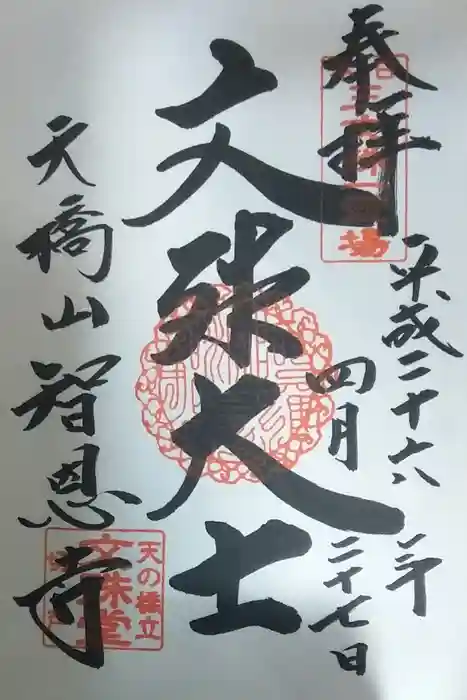 奉拝
平成二十六年
四月
二十七日
文殊大士
天橋山智恩寺
天の橋立
文殊堂